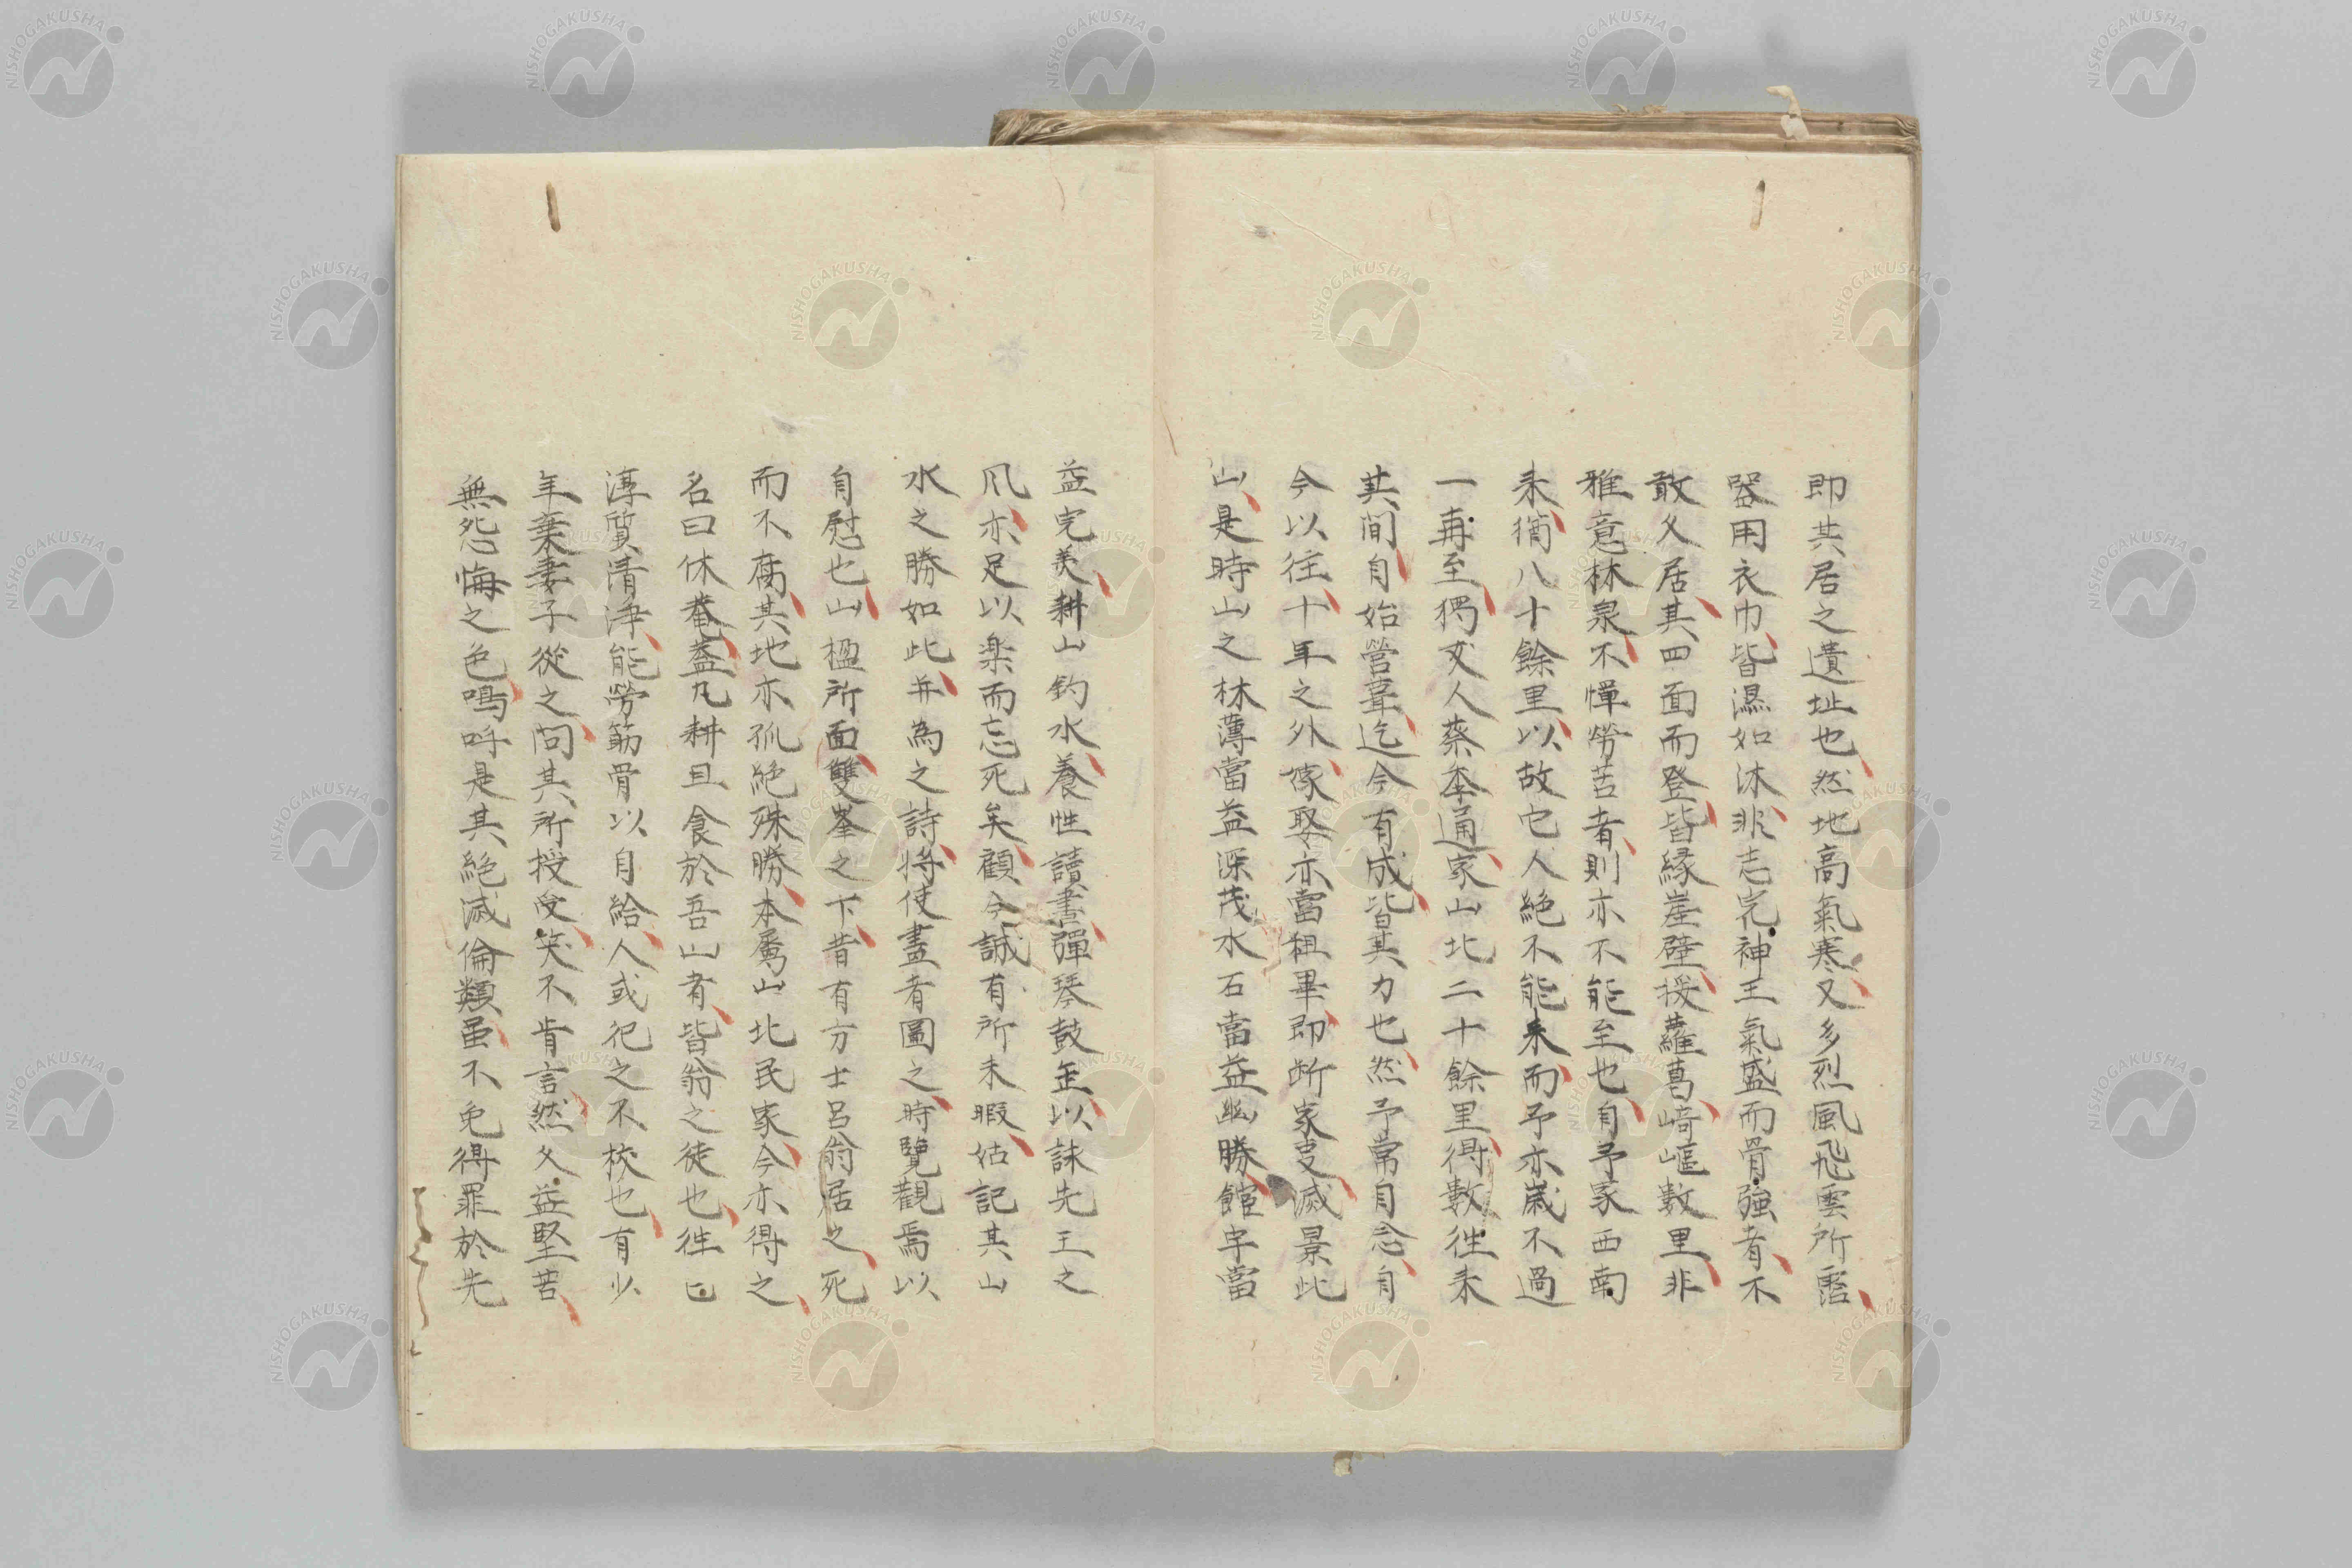 即其居之遺址也然地高氣寒又多烈風飛雲所霑
器用衣巾皆濕如沐非志完神王氣盛而骨強者不
敢久居其四面而登皆緣崖壁援蘿葛崎嶇數里非
雅意林泉不憚勞苦者則亦不能至也自予家西南
来猶八十餘里以故它人絶不能来而予亦歳不過
一再至獨友人蔡季通家山北二十餘里得數徃来
其間自始營葺迄今有成皆其力也然予常自念自
今以往十年之外嫁娶亦當粗畢即断家叓滅景此
山是時山之林薄當益深茂水石當益幽勝館宇當
益完美耕山釣水養性讀書彈琴鼓缶以詠先王之
凮亦足以楽而忘死矣顧今誠有所未暇姑記其山
水之勝如此并為之詩将使畫者圖之時覽觀焉以
自慰也山楹所面雙峯之下昔有方士呂翁居之死
而不腐其地亦孤絶殊勝本属山北民家今亦得之
名曰休菴蓋凡耕且食於吾山者皆翁之徒也徃日
淳質清浄能勞筋骨以自給人或犯之不校也有少
年棄妻子從之問其所授受笑不肯言然久益堅苦
無怨悔之色嗚呼是其絶滅倫類虽不免得罪於先
NISHOGAKUSHA